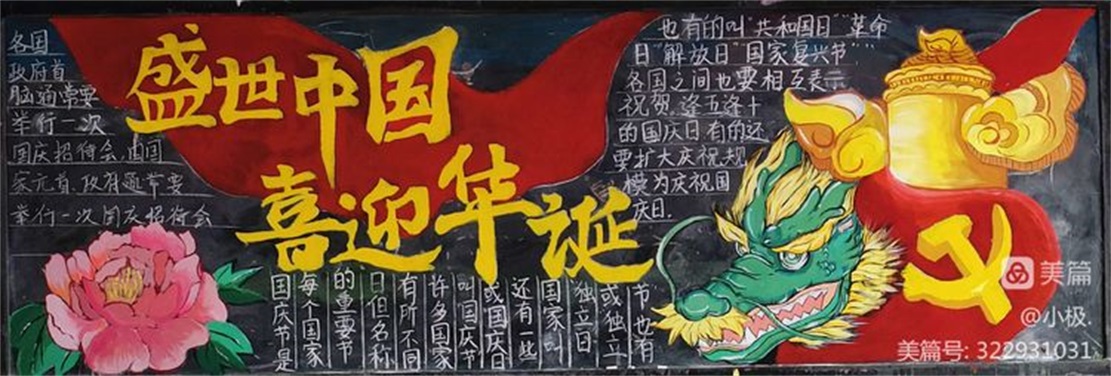 盛世中国
喜迎华诞
各国
政府首
脑通常要
举行一次
国庆招待会,由国
家元首、政府通常要
举行一次国庆招待会
国庆节是
每个国家
的重要节
日但名称
有所不同
许多国家
叫国庆节
或国庆日
还有一些
国家叫
独立日
或独立
节也有
也有的叫“共和国日”“革命
日”“解放日”“国家复兴节”
各国之间也要相互表示
祝贺。逢五逢十
的国庆日有的还
要扩大庆祝规
模为庆祝国
庆日.
美篇
@小极.
美篇号: 322931031